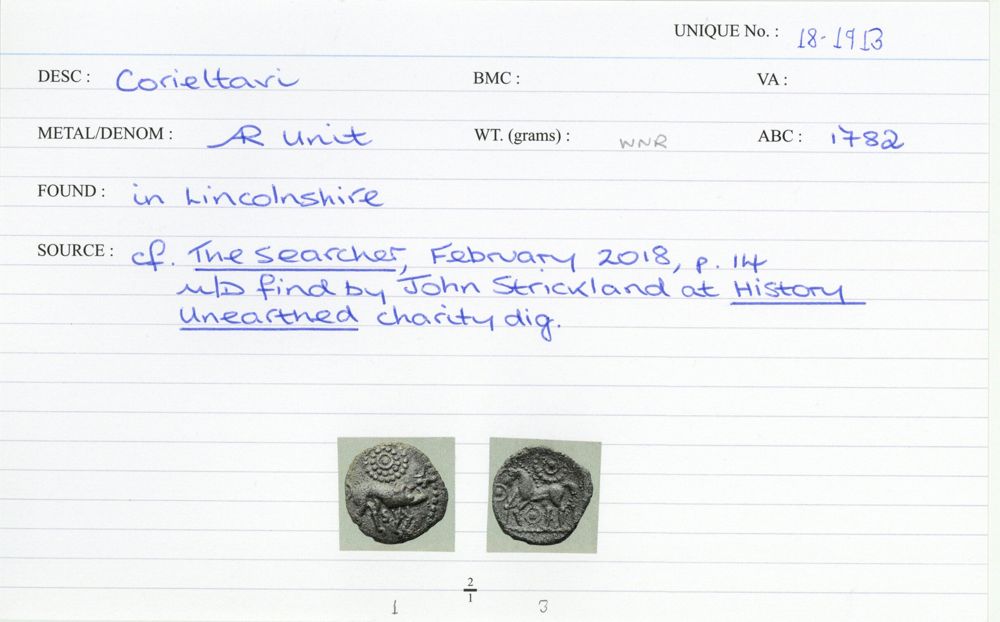 UNIQUE No. : 18-1913
DESC : Corieltavi BMC : VA :
METAL/DENOM : AR Unit WT. (grams) : WNR ABC : 1782
FOUND : in Lincolnshire
SOURCE : cf. The Searcher, February 2018, p. 14
M/D find by John Strickland at History
Unearthed charity dig.
2
1
1 3